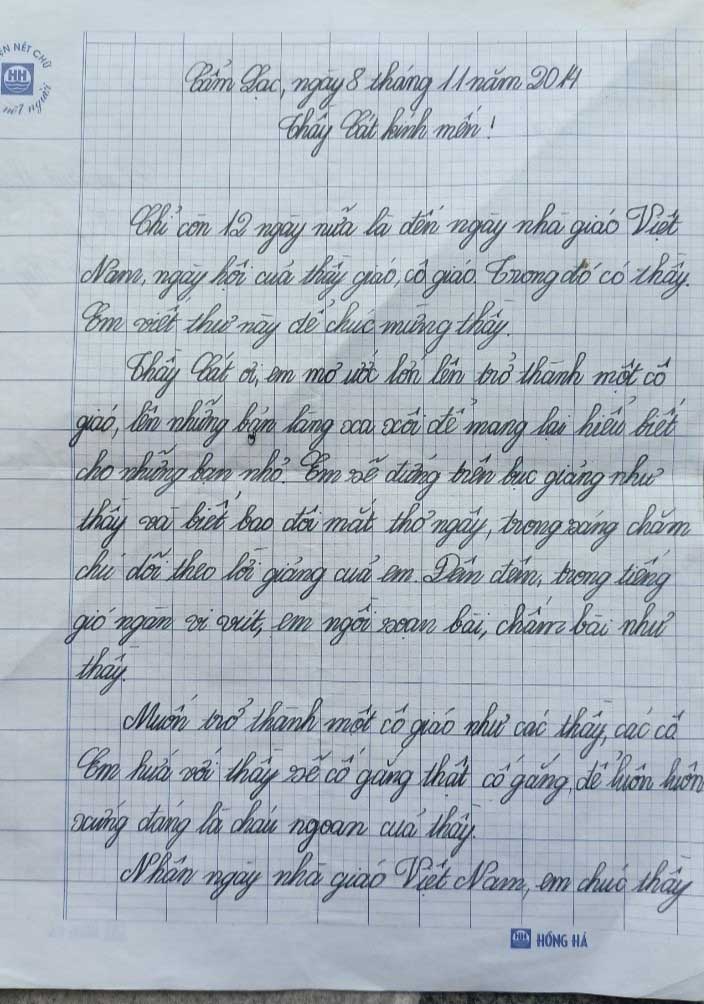 ỆN NẾT CHỮ
HH
nết người
Cẩm Lạc, ngày 8 tháng 11 năm 2014
Thầy Cát kính mến!
Chỉ còn 12 ngày nữa là đến ngày nhà giáo Việt
Nam, ngày hội cuả thầy giáo, cô giáo. Trong đó có thầy.
Em viết thư này để chúc mừng thầy.
Thầy Cát ơi, em mơ ước lớn lên trở thành một cô
giáo, lên những bản làng xa xôi để mang lại hiểu biết
cho những bạn nhỏ. Em sẽ đứng trên bục giảng như
thầy và biết bao đôi mắt thơ ngây, trong sáng chăm
chú dõi theo lời giảng cuả em. Đến đêm, trong tiếng
gió ngàn vi vút, em ngồi soạn bài, chấm bài như
thầy.
Muốn trở thành một cô giáo như các thầy, các cô
Em hứa với thầy sẽ cố gắng thật cố gắng, để luôn luôn
xứng đáng là cháu ngoan cuả thầy.
Nhân ngày nhà giáo Việt Nam, em chúc thầy
HH HỒNG HÀ